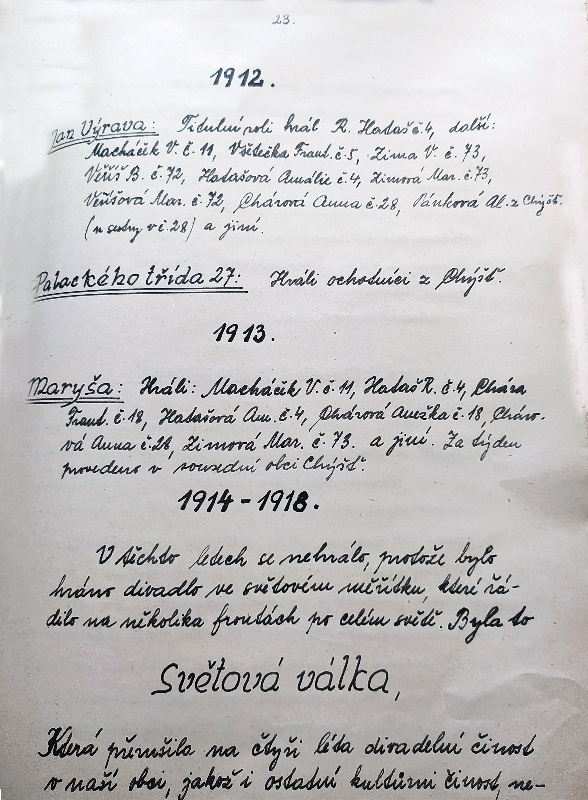 23.
1912.
Jan Výrava: Titulní roli hrál R. Hataš č.4, další:
Macháčik V. č. 11, Všetečka Frant. č.5, Zima V. č. 73,
Věříš B. č.72, Hatašová Amálie č.4, Zimová Mar. č.73,
Veříšová Mar. č.72, Chárová Anna č.28, Pánková Al. z Chýšť.
(u sestry v č.28) a jiní.
Palackého třída 27: Hráli ochotníci z Chýšť.
1913.
Maryša: Hráli: Macháčik V. č. 11, Hataš R. č.4, Chára
Frant. č.18, Hatašová Am. č.4, Chárová Anežka č.18, Cháro-
vá Anna č.28, Zimová Mar. č. 73. a jiní. Za týden
provedeno v sousední obci Chýšť.
1914 - 1918.
V těchto letech se nehrálo, protože bylo
hráno divadlo ve světovém měřítku, které řá-
dilo na několika frontách po celém světě. Byla to
Světová válka,
Která přerušila na čtyři léta divadelní činost
v naší obci, jakož i ostatní kulturní činost, ne-